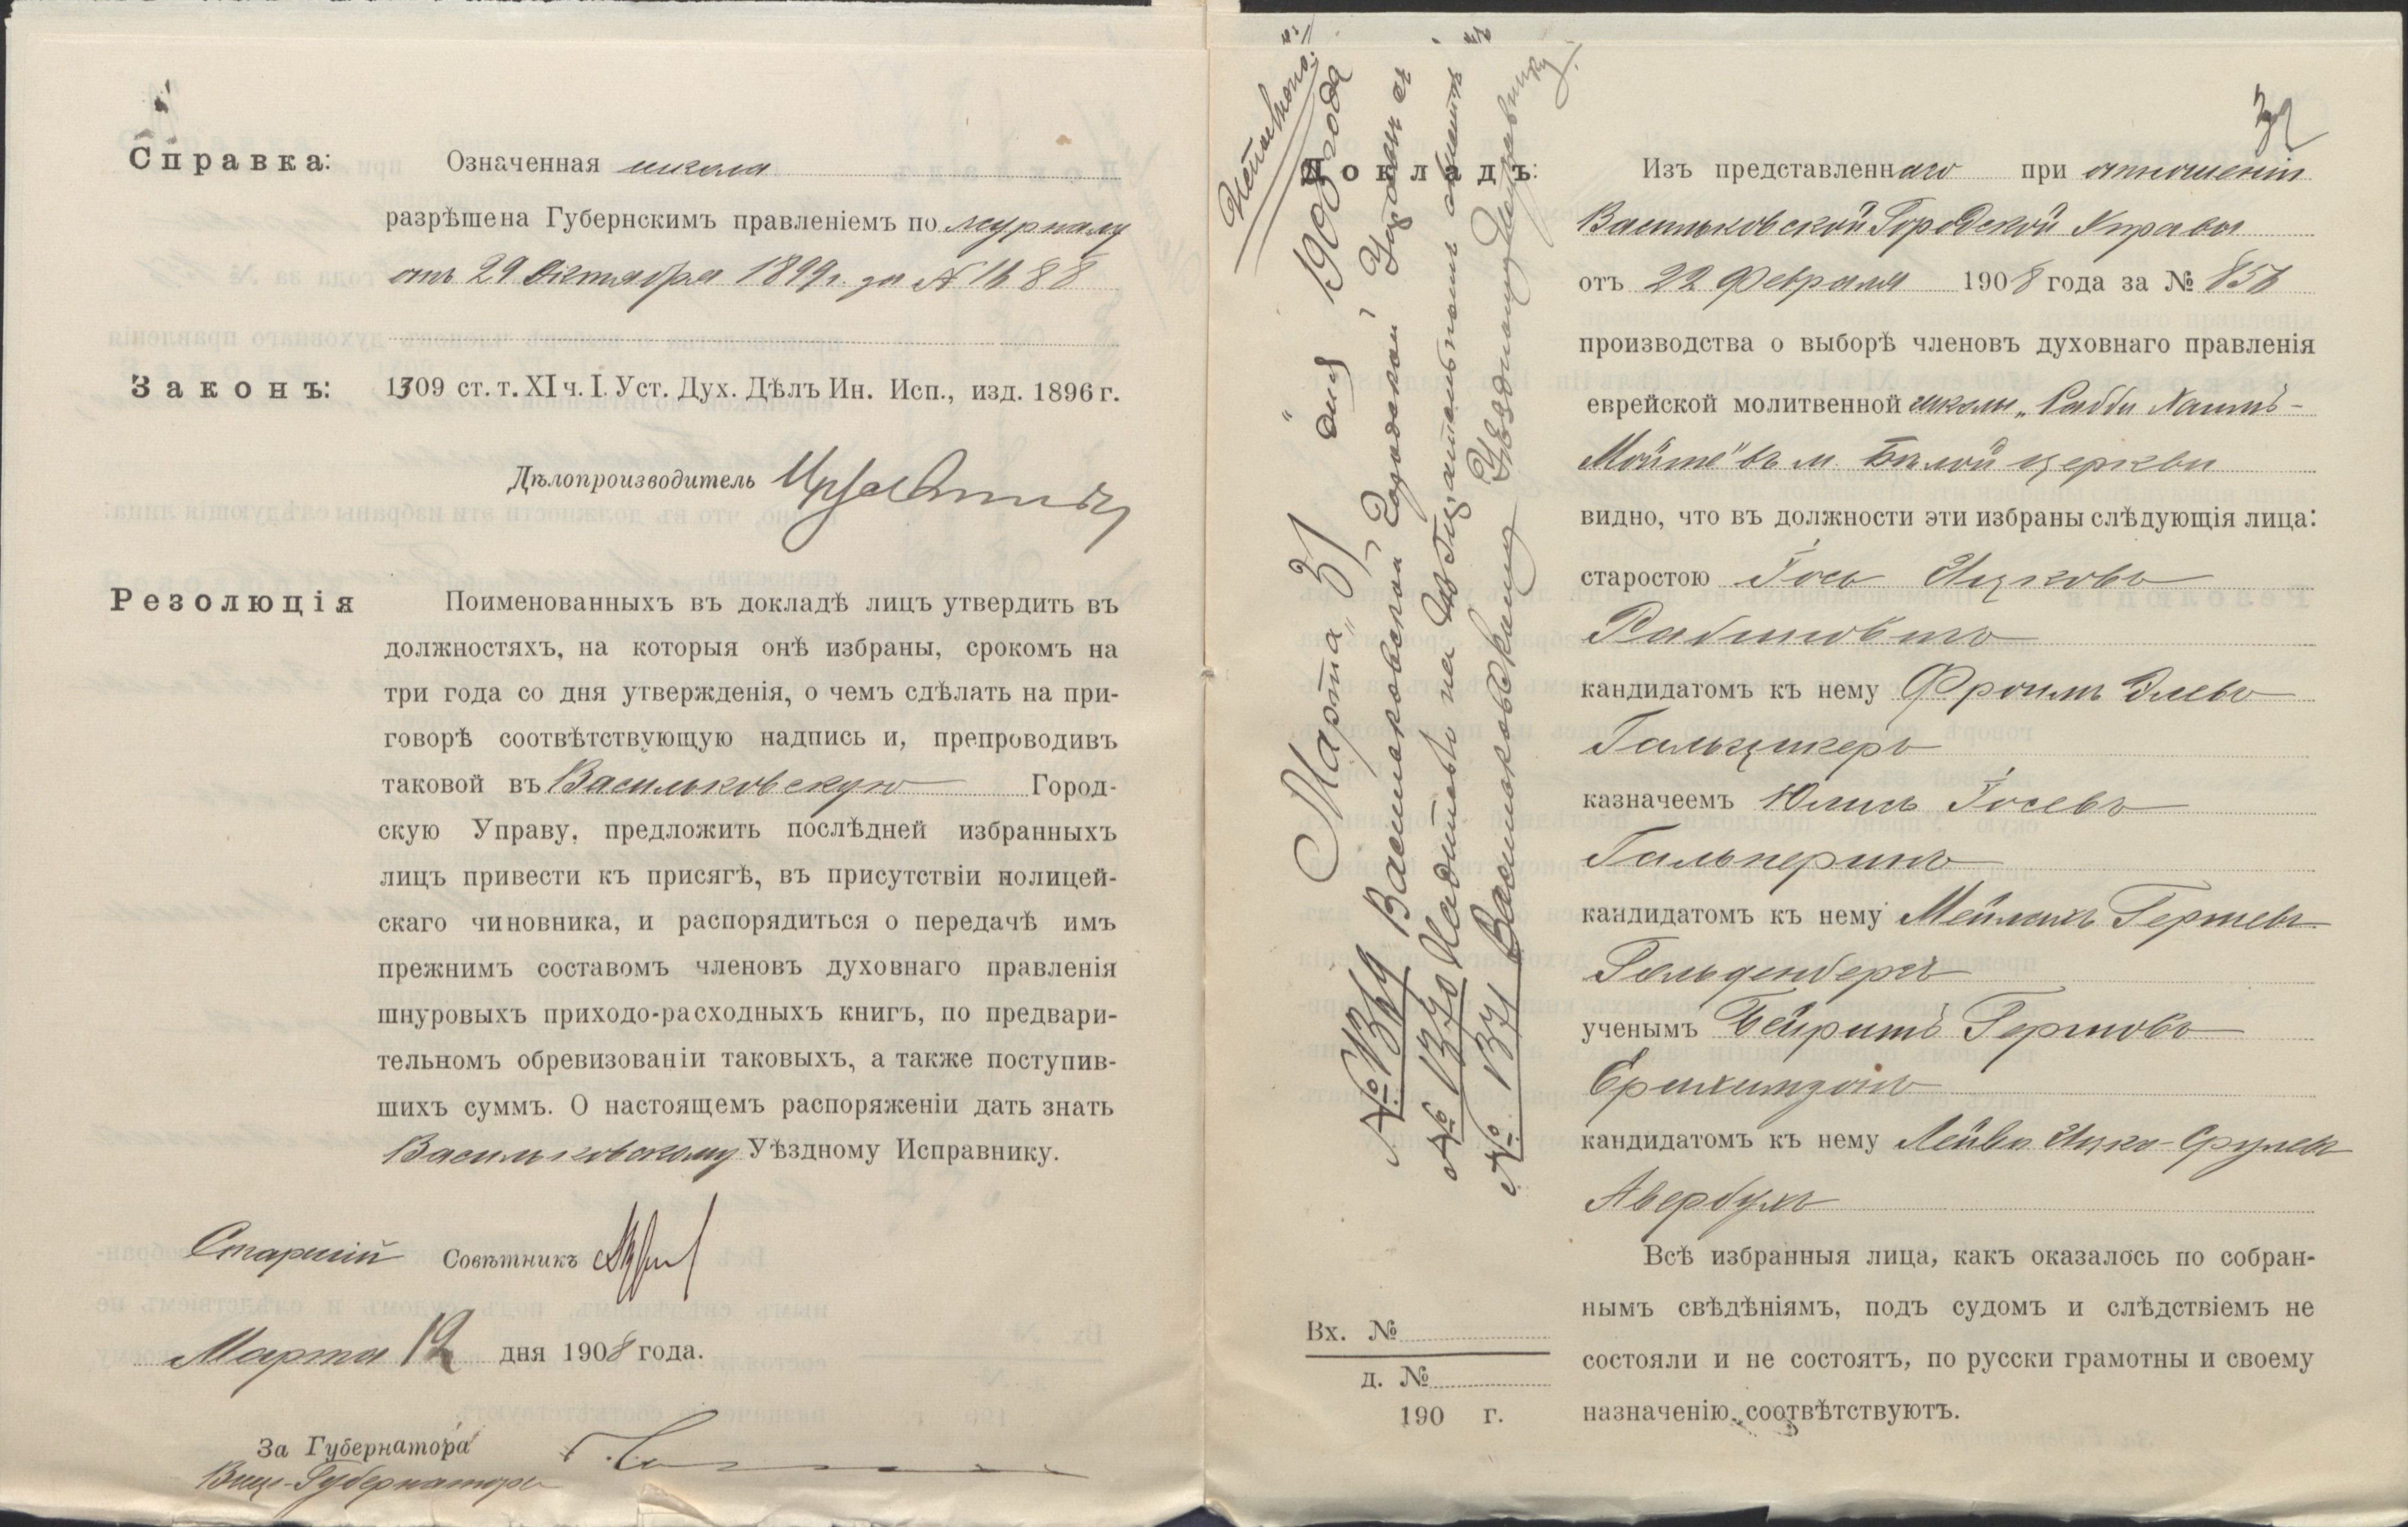 Справка:
Означенная школа
разрѣшена Губернскимъ правленіемъ по журналу
отъ 29 Октября 1899 г. за № 1688
Законъ:
1309 ст. т. XI ч. I. Уст. Дух. Дѣлъ Ин. Исп., изд. 1896 г.
Дѣлопроизводитель
Резолюція
Поименованныхъ въ докладѣ лицъ утвердить въ
должностяхъ, на которыя онѣ избраны, срокомъ на
три года со дня утвержденія, о чемъ сдѣлать на при-
говорѣ соотвѣтствующую надпись и, препроводивъ
таковой въ Васильковскую Город-
скую Управу, предложить послѣдней избранныхъ
лицъ привести къ присягѣ, въ присутствіи полицей-
скаго чиновника, и распорядиться о передачѣ имъ
прежнимъ составомъ членовъ духовнаго правленія
шнуровыхъ приходо-расходныхъ книгъ, по предвари-
тельномъ обревизованіи таковыхъ, а также поступив-
шихъ суммъ. О настоящемъ распоряженіи дать знать
Васильковскому Уѣздному Исправнику.
Старшій Совѣтникъ
Марта 12 дня 1908 года.
За Губернатора
Вице-Губернаторъ
32
Докладъ:
Изъ представленнаго при отношеніи
Васильковской Городской Управы
отъ 22 Февраля 1908 года за № 856
производства о выборѣ членовъ духовнаго правленія
еврейской молитвенной школы „Рабби Хаимъ-
Мойше" въ м. Бѣлой церкви
видно, что въ должности эти избраны слѣдующія лица:
старостою Іось Ицковъ
Рабиновичъ
кандидатомъ къ нему Фроимъ Элевъ
Гальцикеръ
казначеемъ Юлись Іосевъ
Гальперинъ
кандидатомъ къ нему Мейлихъ Гершевъ
Гольденбергъ
ученымъ Бейришъ Гершовъ
Ерихимзонъ
кандидатомъ къ нему Лейба Ицко-Срулевъ
Авербухъ
Всѣ избранныя лица, какъ оказалось по собран-
нымъ свѣдѣніямъ, подъ судомъ и слѣдствіемъ не
состояли и не состоятъ, по русски грамотны и своему
назначенію соотвѣтствуютъ.
Марта „31" дня 1908 года
№ 1369 Васильковской Городской Управѣ съ
№ 1370 Надписью на
№ 1371 Васильковскому Уѣздному Исправнику.
Вх. №
д. №
190 г.